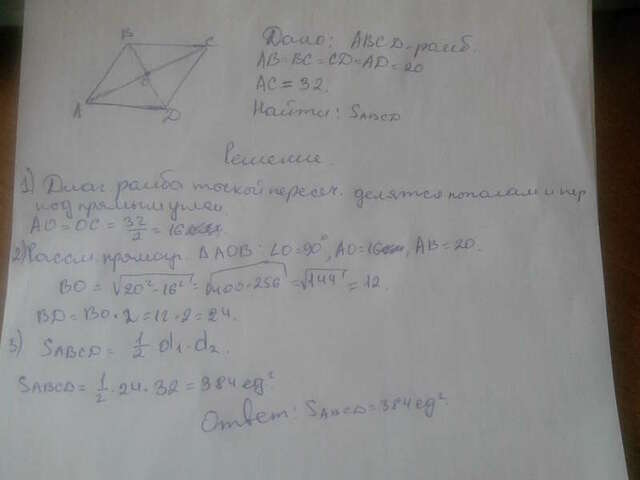 B C
O
A D
Дано: ABCD-ромб.
AB=BC=CD=AD=20
AC=32.
Найти: SABCD
Решение.
1) Диаг ромба точкой пересеч. делятся пополам и пер
под прямым углом.
AO=OC=32/2=16
2) Рассм прямоуг. ΔAOB: ∠O=90°, AO=16, AB=20.
BO=√20²-16²=√400-256=√144=12.
BD=BO·2=12·2=24.
3) SABCD=1/2 d1·d2.
SABCD=1/2·24·32=384ед²
Ответ: SABCD=384ед²